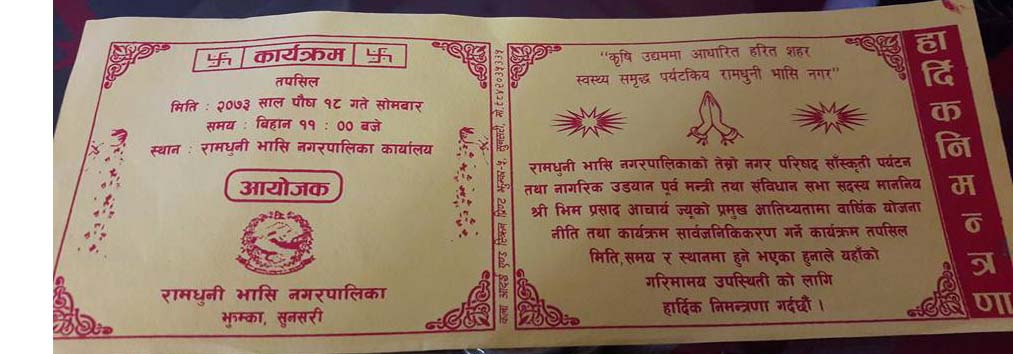 कार्यक्रम
तपसिल
मिति : २०७३ साल पौष १८ गते सोमबार
समय : बिहान ११ : 00 बजे
स्थान : रामधुनी भासि नगरपालिका कार्यालय
आयोजक
रामधुनी भासि नगरपालिका
झुम्का, सुनसरी
"कृषि उद्यममा आधारित हरित शहर
स्वस्थ्य समृद्ध पर्यटकिय रामधुनी भासि नगर"
रामधुनी भासि नगरपालिकाको तेस्रो नगर परिषद साँस्कृती पर्यटन
तथा नागरिक उडयान पूर्व मन्त्री तथा संविधान सभा सदस्य माननिय
श्री भिम प्रसाद आचार्य ज्यूको प्रमुख आतिथ्यतामा वार्षिक योजना
नीति तथा कार्यक्रम सार्वजनिकिकरण गर्ने कार्यक्रम तपसिल
मिति,समय र स्थानमा हुने भएका हुनाले यहाँको
गरिमामय उपस्थिती को लागि
हार्दिक निमन्त्रणा गर्दछौं ।
हार्दिक निमन्त्रणा